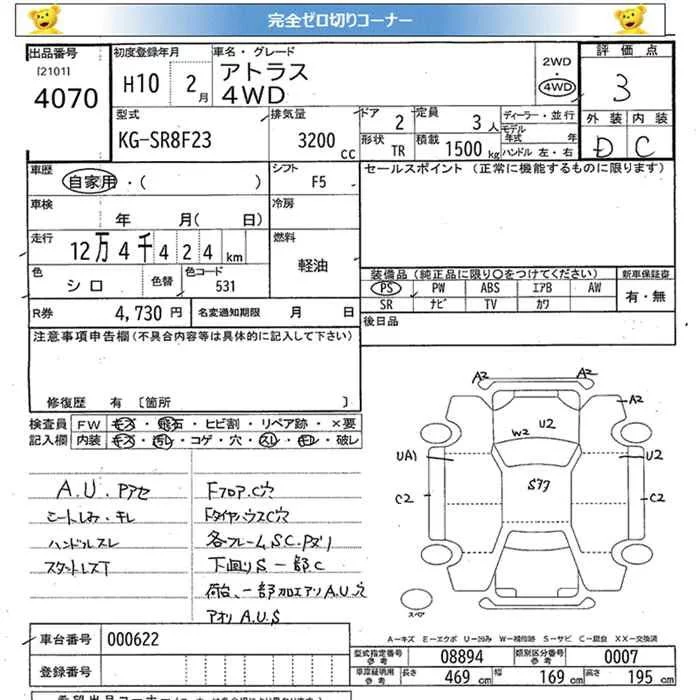 完全ゼロ切りコーナー
出品番号
[2101]
4070
初度登録年月
H10 2月
車名・グレード
アトラス
4WD
2WD
4WD
評価点
3
外装 内装
D C
型式
KG-SR8F23
排気量
3200 cc
ドア 2
形状 TR
定員 3人
積載 1500 kg
ディーラー・並行
モデル年式 年
ハンドル 左・右
車歴
自家用・( )
シフト
F5
セールスポイント (正常に機能するものに限ります)
車検
年 月( 日)
冷房
走行
12万4千424km
燃料
軽油
色
シロ
色替
色コード
531
装備品(純正品に限り○をつけてください)
PS PW ABS エアB AW
SR ナビ TV カワ
新車保証書
有・無
R券 4,730円
名変通知期限 月 日
後日品
注意事項申告欄(不具合内容等は具体的に記入して下さい)
修復歴 有 〔箇所 〕
検査員記入欄
FW キズ・飛石・ヒビ割・リペア跡・×要
内装 キズ・汚レ・コゲ・穴・スレ・キレ・破レ
A.U.Pアセ
シートしみ・キレ
ハンドルスレ
スタートレスT
FフロアC穴
FタイヤハウスC穴
各フレームSC.Pズリ
下回りS一部C
荷台、一部加工アリA.U.穴
アオリA.U.S
A2
A2
A2
U2
W2
UA1
U2
Sアク
C2
C2
スペア
A-キズ E-エクボ U-凹み W-補修跡 S-サビ C-腐食 XX-交換済
車台番号 000622
登録番号
型式指定番号 参考 08894
類別区分番号 参考 0007
車庫証明用 参考
長さ 469 cm
幅 169 cm
高さ 195 cm